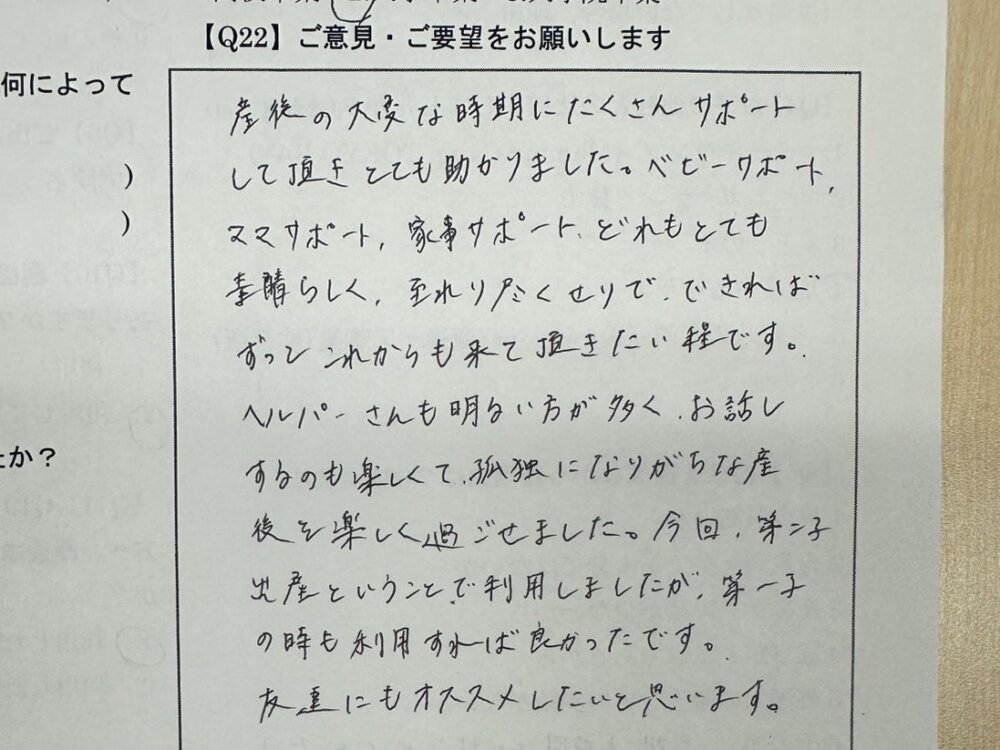 【Q22】ご意見・ご要望をお願いします
何によって
)
)
たか？
産後の大変な時期にたくさんサポート
して頂きとても助かりました。ベビーサポート,
ママサポート, 家事サポート, どれもとても
素晴らしく, 至れり尽くせりで, できれば
ずっとこれからも来て頂きたい程です。
ヘルパーさんも明るい方が多く, お話し
するのも楽しくて, 孤独になりがちな産
後を楽しく過ごせました。今回, 第二子
出産ということで利用しましたが, 第一子
の時も利用すれば良かったです。
友達にもオススメしたいと思います。